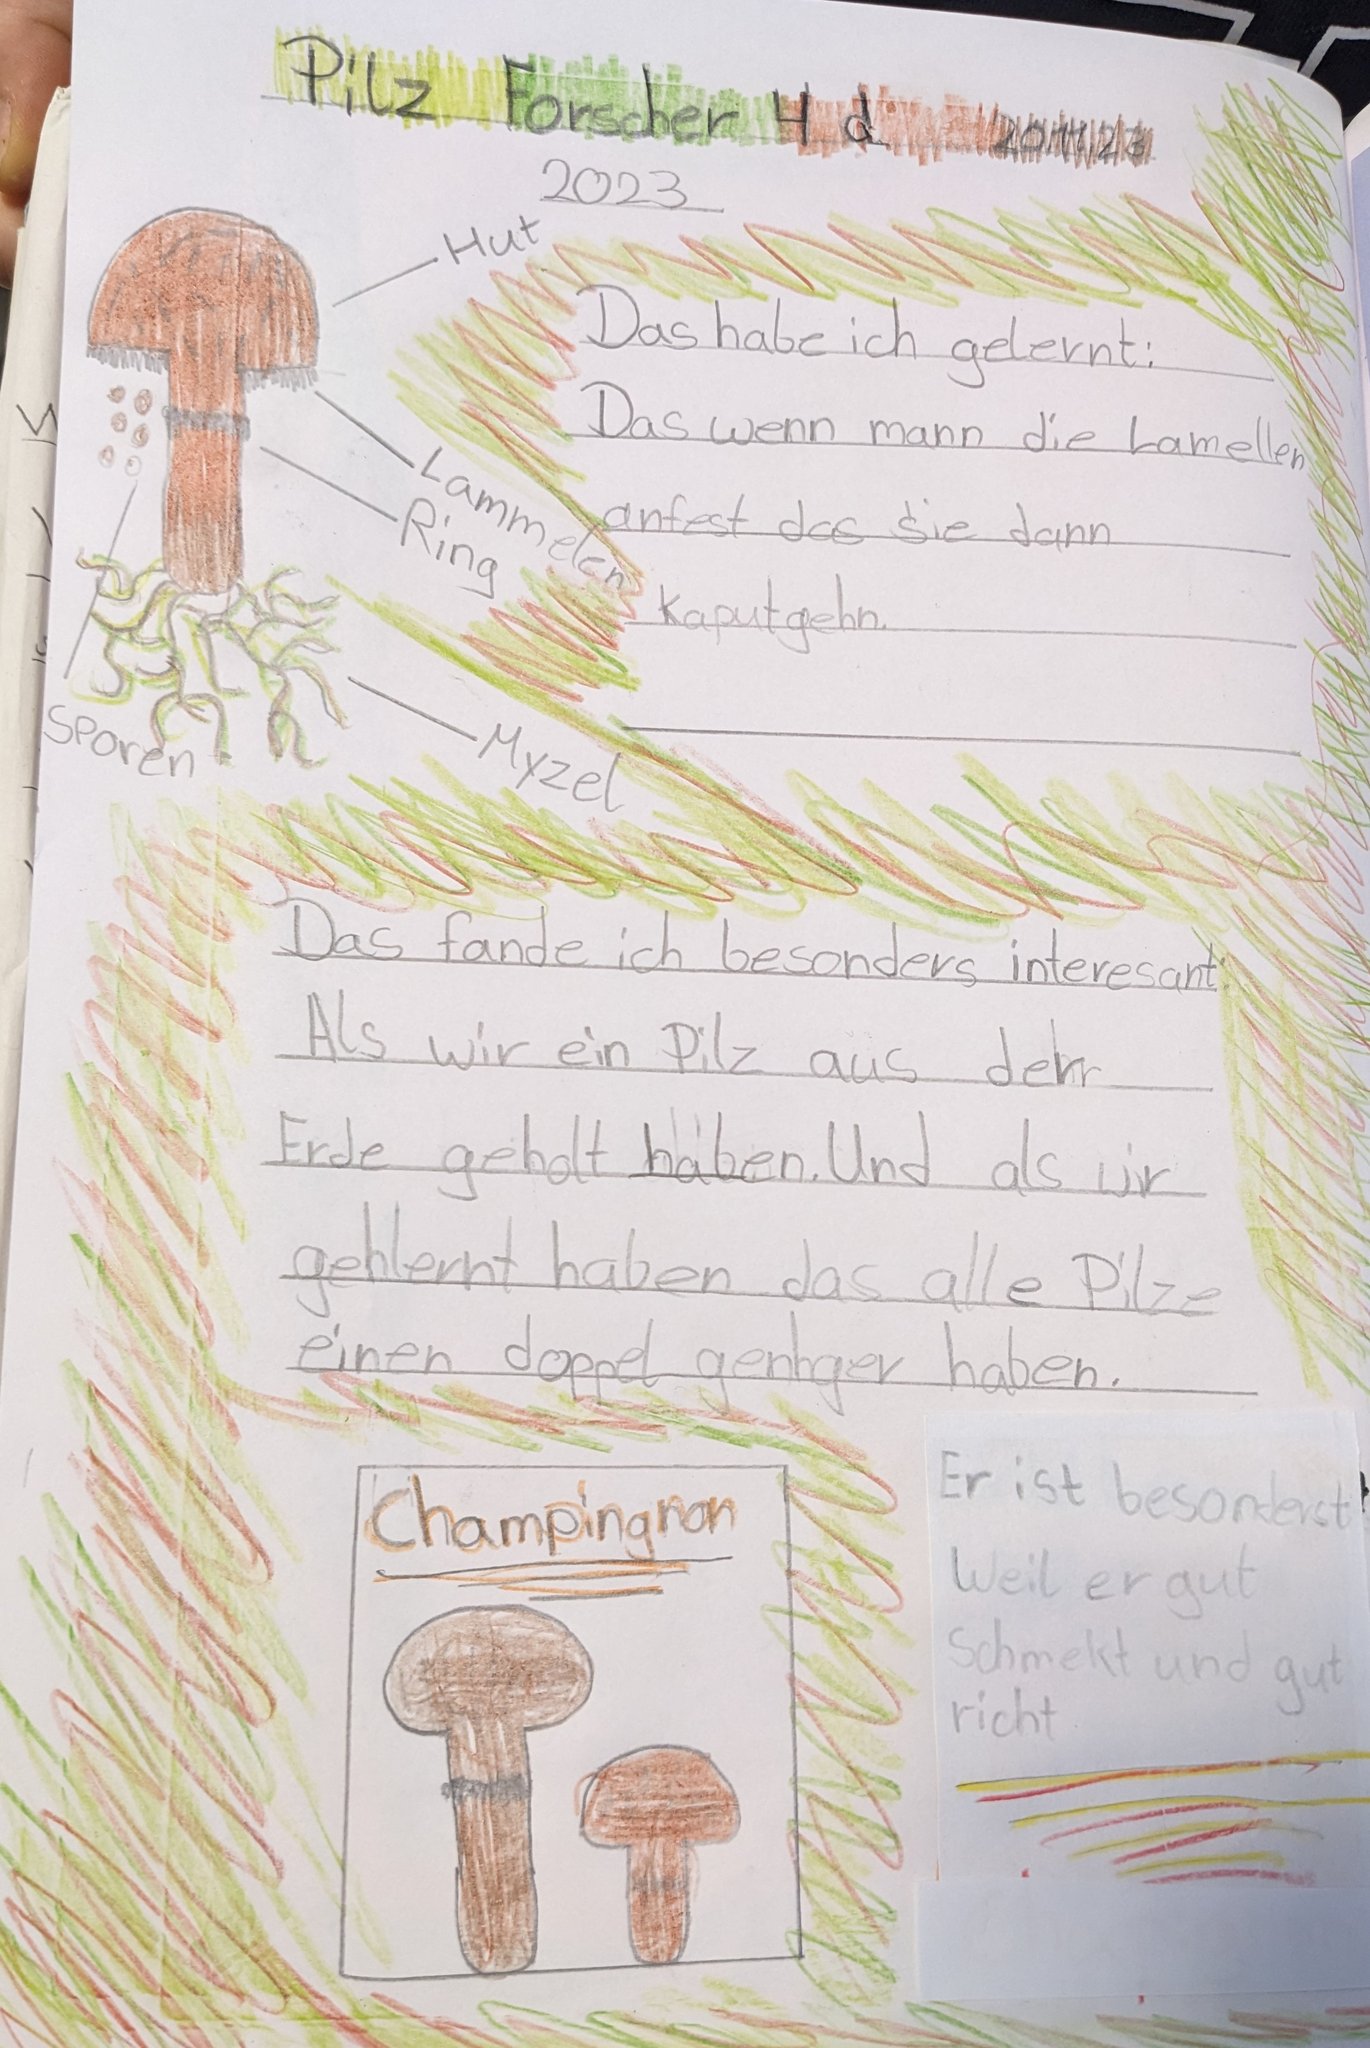 Pilz Forscher 4 d 20.11.23
2023
Hut
Das habe ich gelernt:
Das wenn mann die Lamellen
anfest das sie dann
kaputgehn.
Lammelen
Ring
Sporen
Myzel
Das fande ich besonders interesant:
Als wir ein Pilz aus dehr
Erde geholt haben. Und als wir
gehlernt haben das alle Pilze
einen doppel genger haben.
Champingnon
Er ist besonderst
Weil er gut
Schmekt und gut
richt